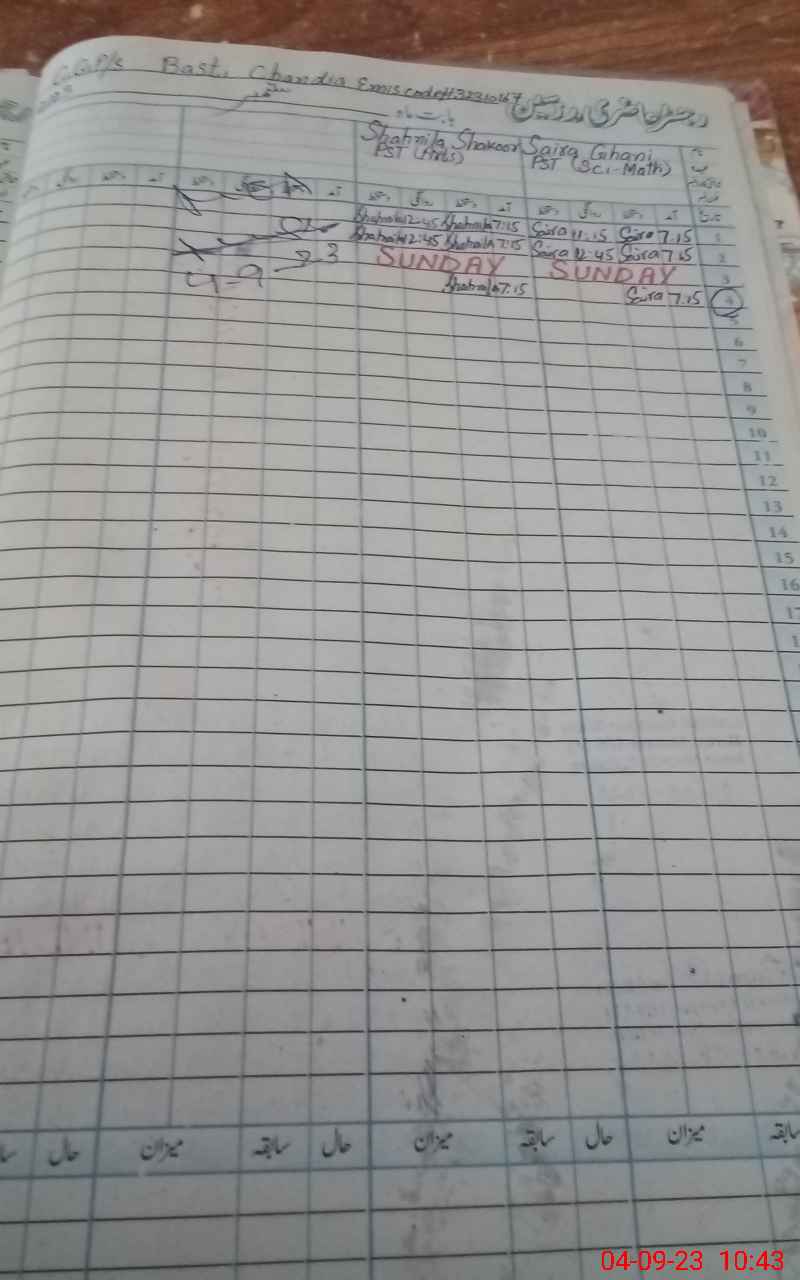 G.G.P/s Basti Chandia Emis code#
رجسٹر حاضری مدرسین
بابت ماہ ستمبر
Shahnila Shakoor Saira Ghani
PST (Arts) PST (Sci-Math)
Shahnila 12:45 Shahnila 7:15 Saira 11:15 Saira 7.15 1
Shahnila 12:45 Shahnila 7:15 Saira 12:45 Saira 7.15 2
SUNDAY SUNDAY 3
4-9-23 Shahnila 7:15 Saira 7.15 4
5
6
7
8
9
10
11
12
13
14
15
16
میزان سابقہ حال میزان سابقہ حال میزان حال
04-09-23 10:43